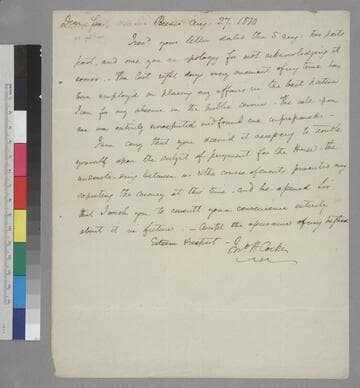 Dear Sir, Bremo Aug. 27. 1810
I recd your letter dated the 5 Aug. two posts
past, and owe you an apology for not acknowledging it
sooner - The last eight days every moment of my time has
been employed in placing my affairs in the best posture
I can for my absence in the Public service - the call upon
me was entirely unexpected and found me unprepared -
I am sorry that you deemed it necessary to trouble
yourself upon the subject of payment for the Horse - the
understanding between us & the course of events prevented my
expecting the money at this time - and be assured Sir
that I wish you to consult your convenience entirely
about it in future - Accept the assurance of my highest
Esteem & respect - Jno H. Cocke